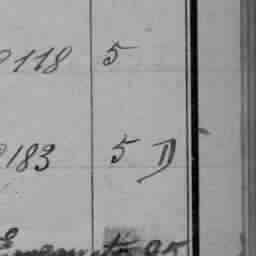 118 5
183 5 D